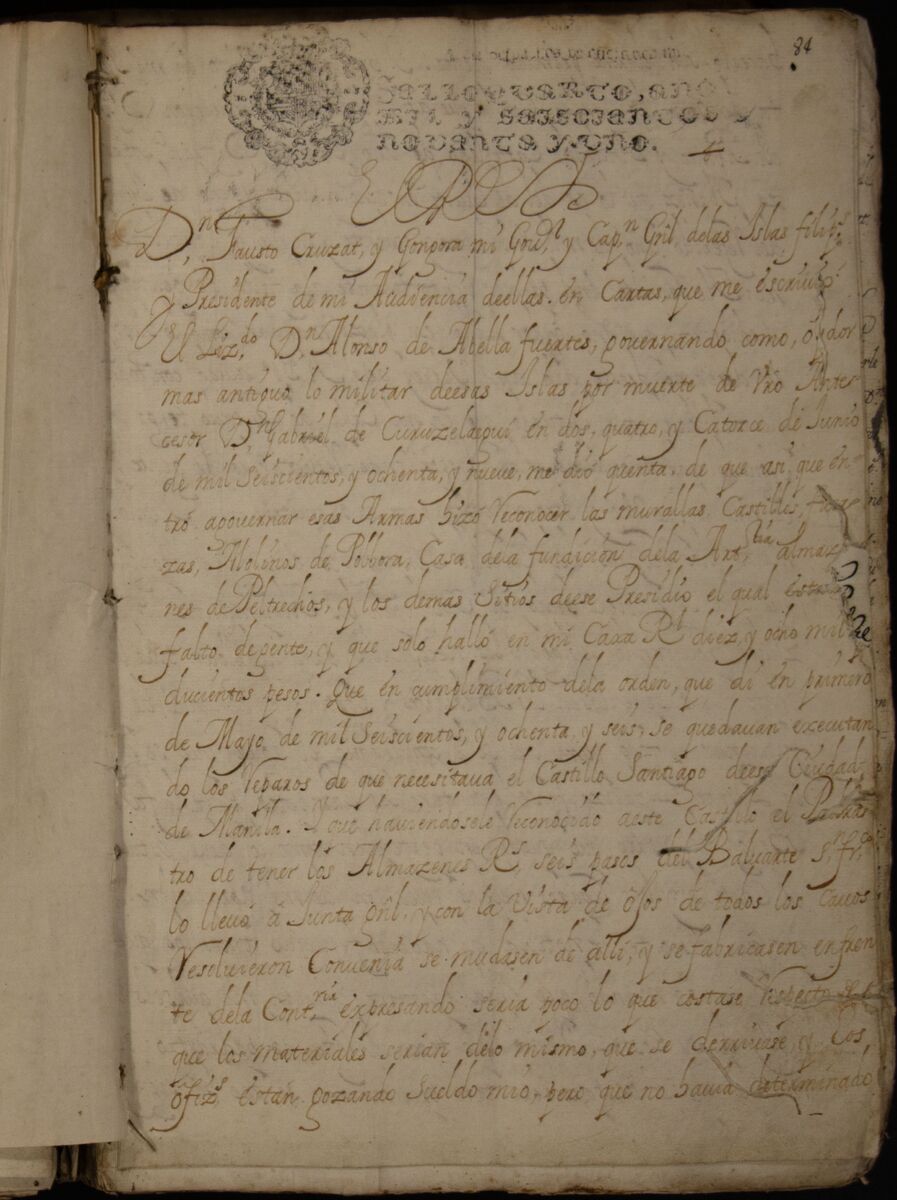 84
SELLO QVARTO, AÑO
MIL Y SEISCIENTOS Y
NOVENTA Y VNO.
El Rey
Dn. Fausto Cruzat, y Gongora mi Govr. y Capn. Gral delas Islas filips.
y Presidente de mi Audiencia deellas. en Cartas, que me escrivió
el Lizdo. Dn. Alonso de Abella fuertes, governando como, oydor
mas antiguo lo militar deesas Islas por muerte de Vro Ante
cesor Dn Gabriel de Curuzelaegui en dos, quatro, y Catorce de Junio
de mil Seiscientos, y ochenta, y nueve, me dió quenta. de que asi que en
tró agovernar esas Armas hizo Reconocer las murallas, Castillos,
zas, Molinos de Polbora, Casa dela fundicion dela Artria. almaze
nes de Peltrechos, y los demas Sitios deese Presidio el qual
falto degente, y que solo halló en mi Caxa Rl diez, y ocho mil
ducientos pesos. Que en cumplimiento dela orden, que di en primero
de Mayo de mil Seiscientos, y ochenta, y seis, se quedavan executan
do los Reparos de que necesitava el Castillo Santiago deesa Ciudad
de Manila. Y que haviendosele Reconocido aeste Castillo el Padras
tro de tener los Almazenes Rs. seis pasos del Baluarte Sn. frco
lo llevó á Junta gral, y con la Vista de ojos de todos los Cavos
Resolvieron Convenia se mudasen de alli, y se fabricasen enfren
te dela Contria. expresando seria poco lo que costase Respecto de
que los materiales serian delo mismo, que se derrivase, y los
ofizs. estan gozando Sueldo mio, pero que no havia determinado